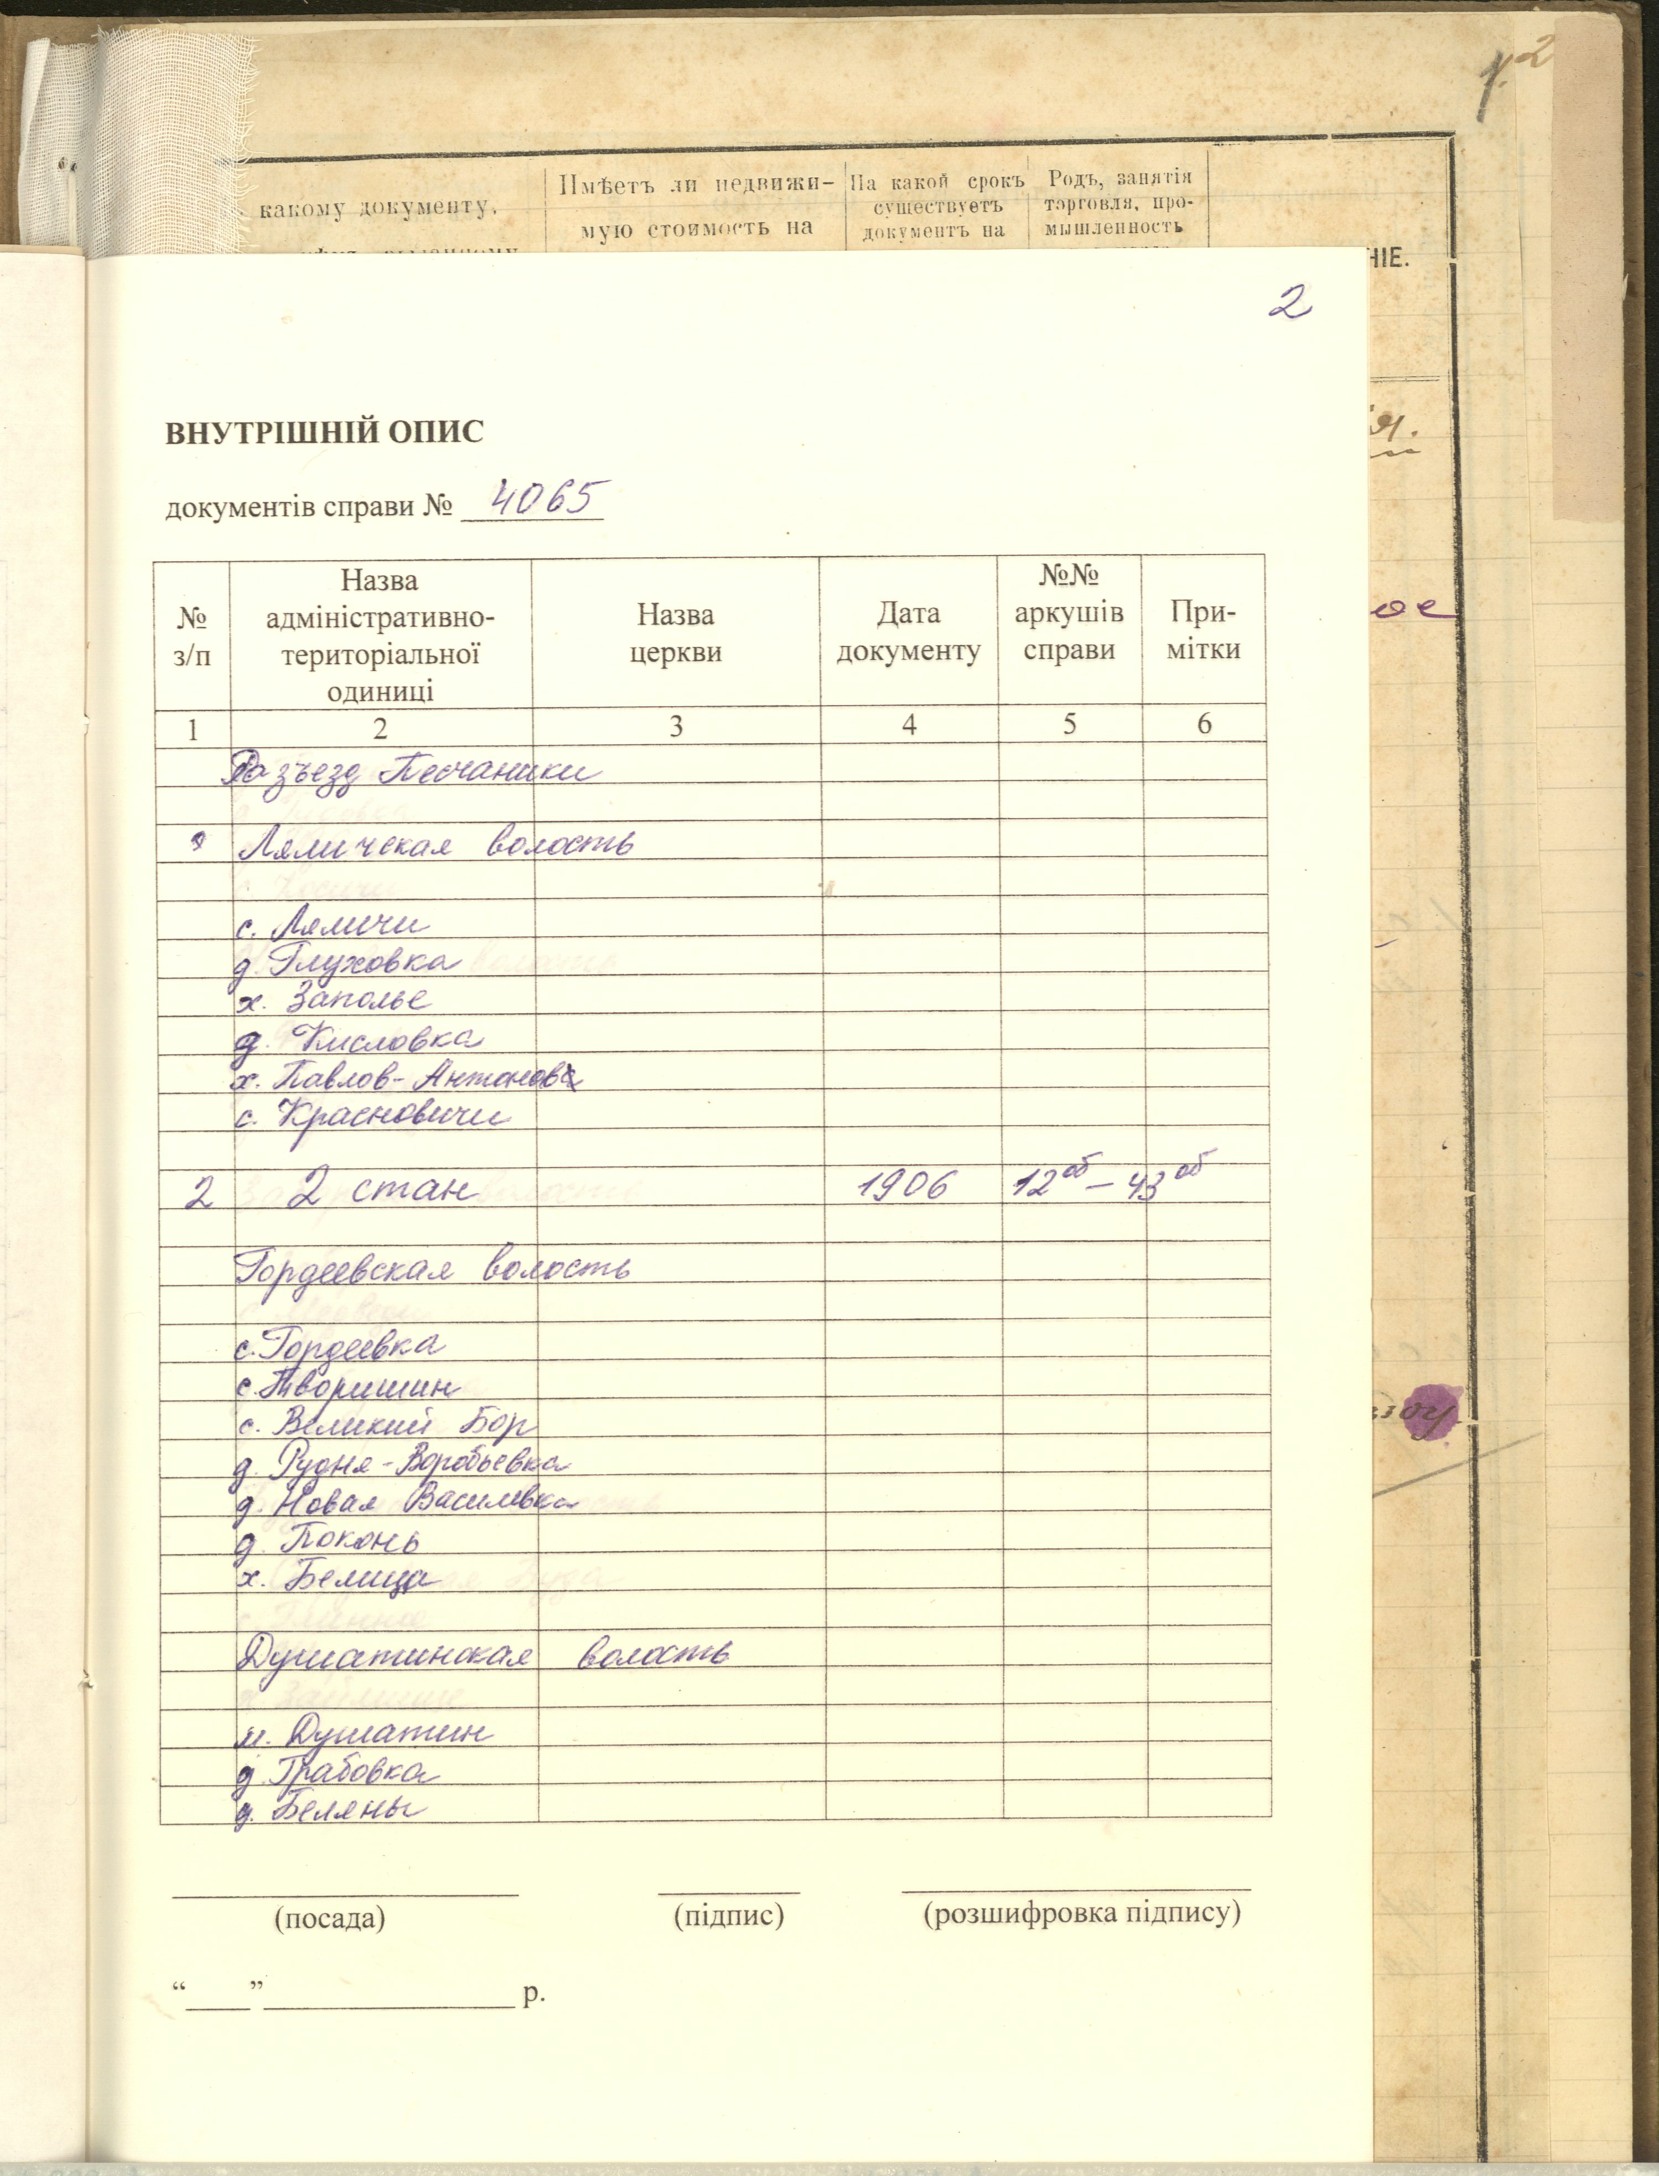 1. 2
какому документу,
Имѣетъ ли недвижи-
мую стоимость на
На какой срокъ
существуетъ
документъ на
Родъ, занятія
торговля, про-
мышленность
НІЕ.
2
ВНУТРІШНІЙ ОПИС
документів справи № 4065
№ з/п
Назва адміністративно-територіальної одиниці
Назва церкви
Дата документу
№№ аркушів справи
При-мітки
1 2 3 4 5 6
Разъезд Песчаники
Ляличская волость
с. Ляличи
д. Глуховка
х. Заполье
д. Кисловка
х. Павлов-Антонов
с. Красновичи
2 2 стан 1906 12об – 43об
Гордеевская волость
с. Гордеевка
с. Творишин
с. Великий Бор
д. Рудня-Воробьевка
д. Новая Василевка
д. Поконь
х. Белица
Душатинская волость
м. Душатин
д. Грабовка
д. Беляны
(посада) (підпис) (розшифровка підпису)
“____”__________________ р.